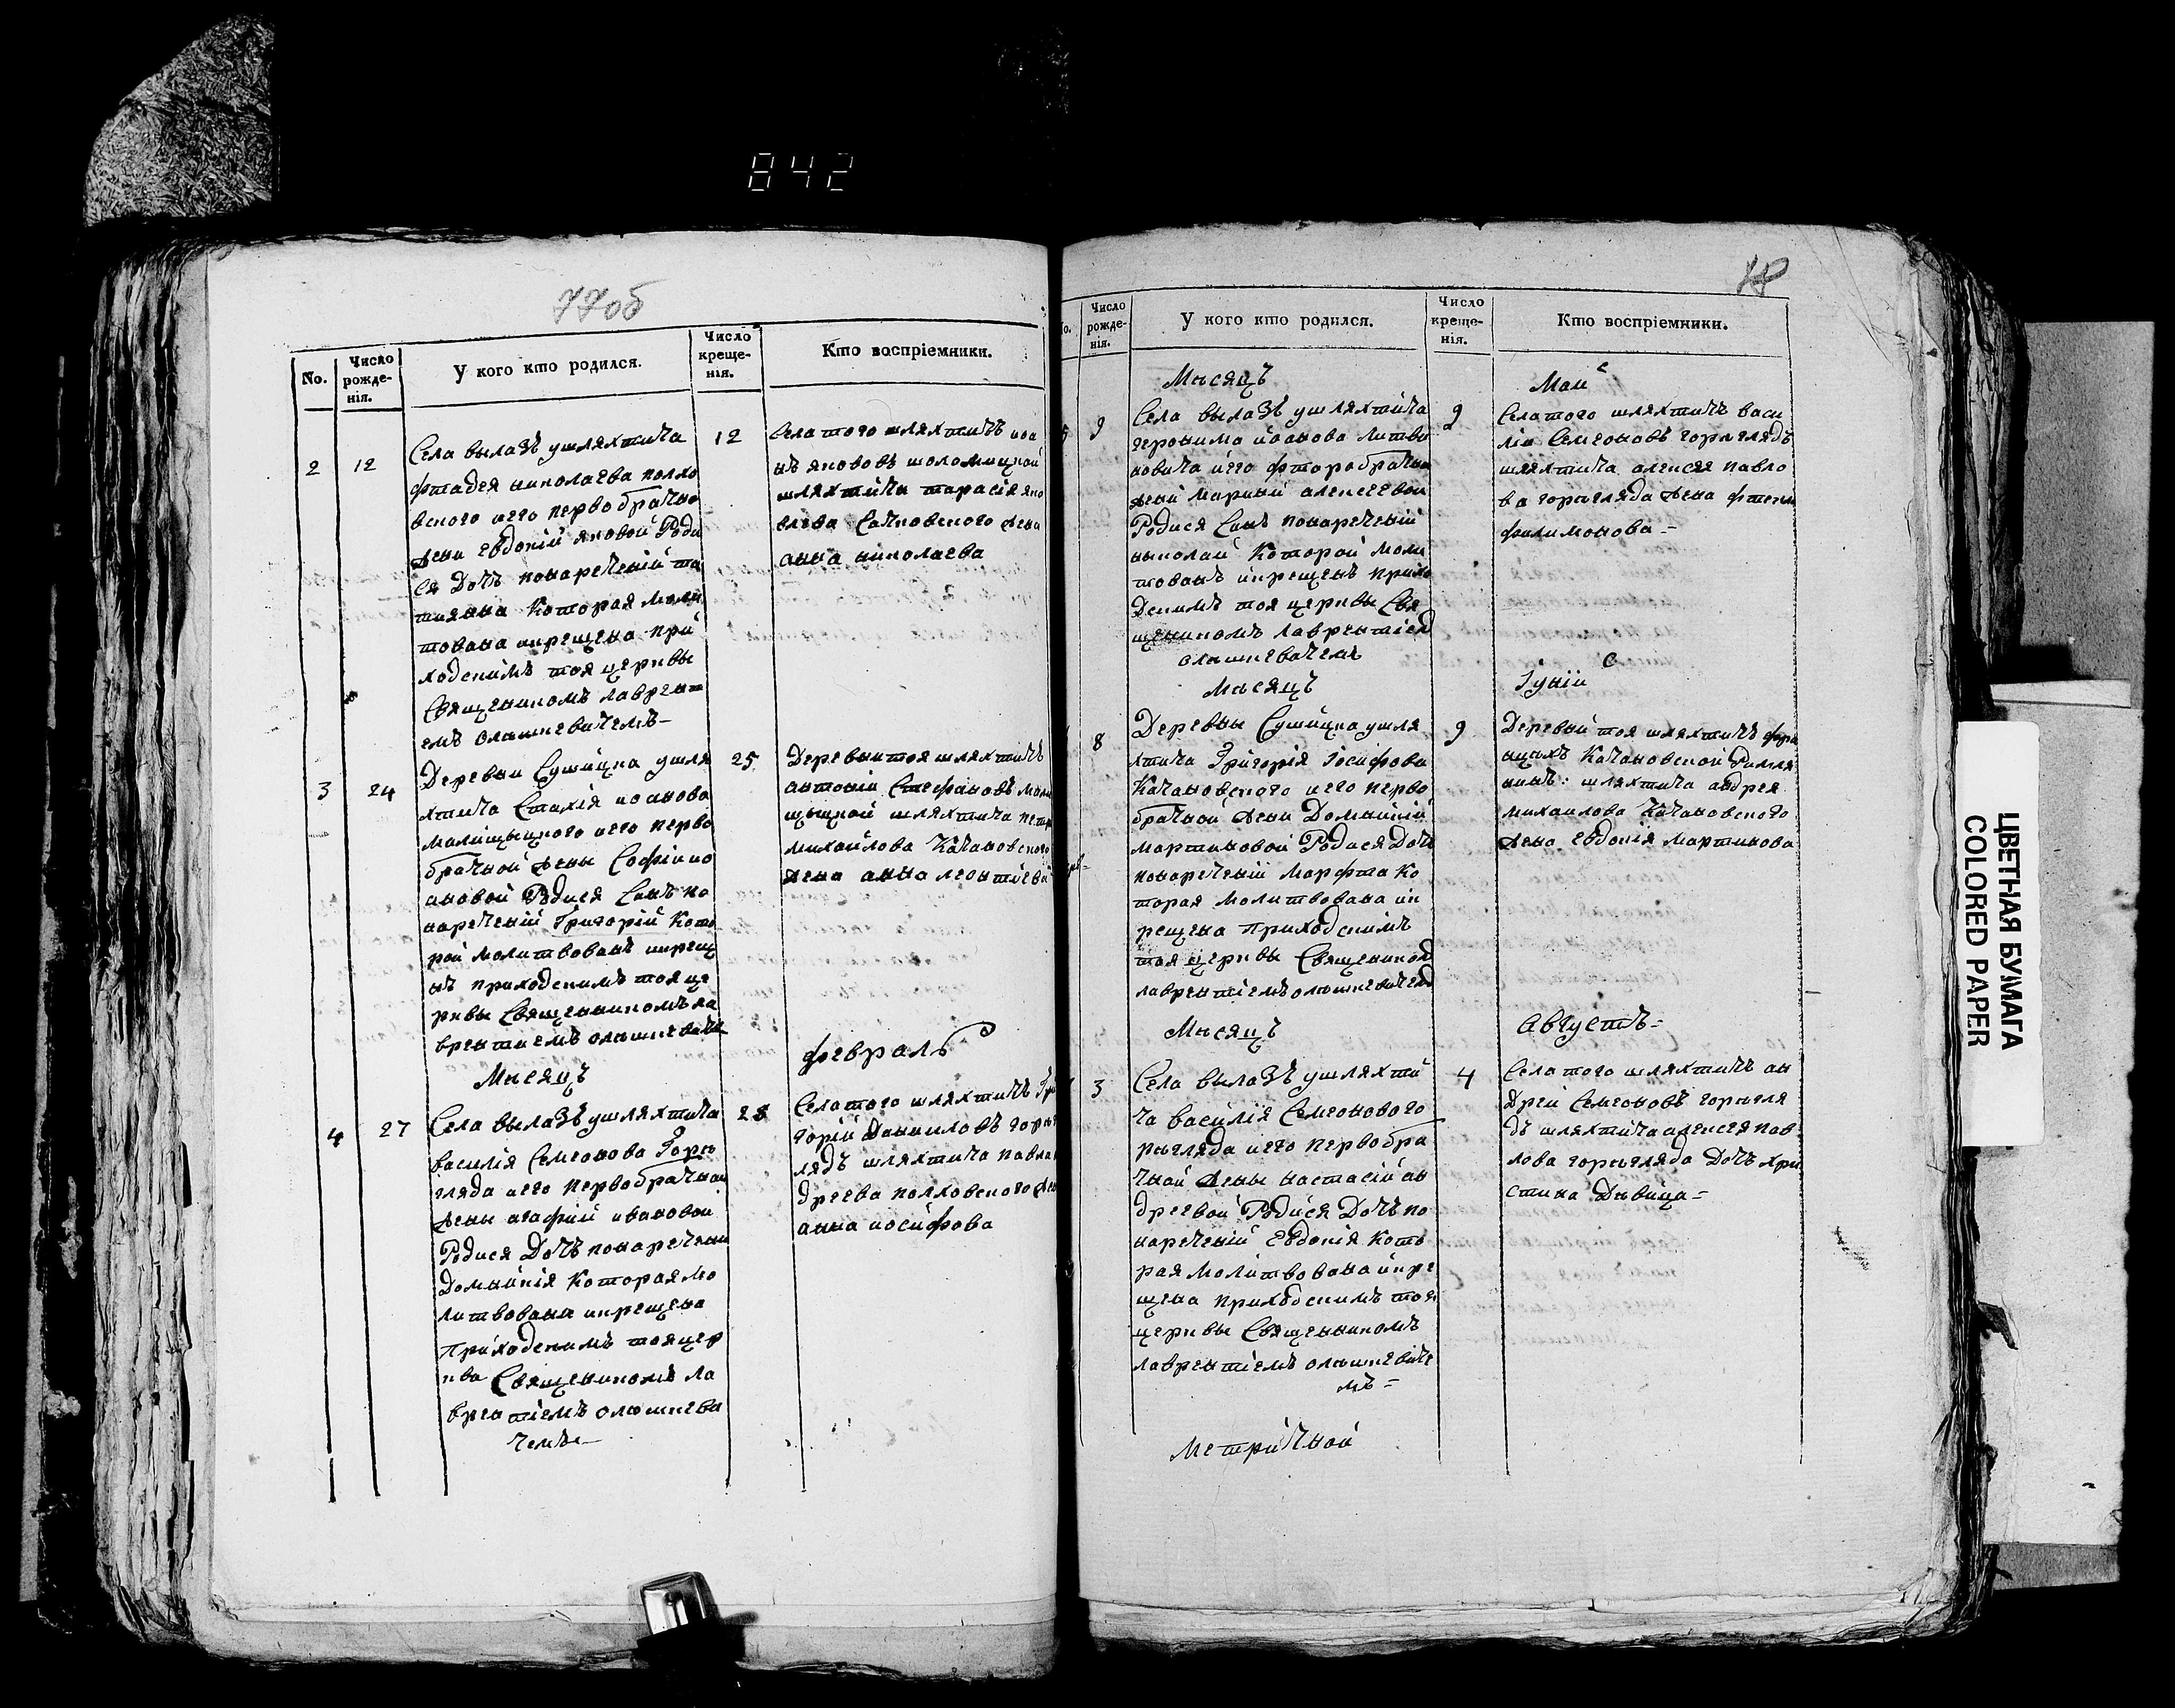 842
77об
No.
Число рожде-нія.
У кого кто родился.
Число креще-нія.
Кто воспріемники.
2
12
Села вылазѣ ушляхтича
фтадея николаева полхо
вского иего первобрачно
жени евдокій яковой Роди
ся Дочъ понареченій та
тияна Которая моли
твована икрещена при
ходскимъ тоя церквы
Священикомъ лаврен
емъ олышевичемъ
12
Села того шляхтичъ иоа
нъ яковъ шоломицкой
шляхтича тарасія яко
влева Сачковского жена
анна николаева
3
24
Деревни Сушицка ушля
хтича Стахія иоанова
малищыцкого иего перво
брачной жены Софіи ио
ановой Родися Сынъ по
нареченій Григорій Кото
рой молитвованъ икрещ
нъ приходскимъ тоя це
рквы Священникомъ ла
врентиемъ
25
Деревни тоя шляхтичъ
антоній Стефановъ мали
щыцкой шляхтича петра
михайлова Качановского
жена анна леонтіева
Мѣсяцъ
февраль
4
27
Села вылазѣ ушляхтича
василія Семеонова Горе
гляда иего первобрачной
жены агафіи ивановой
Родися Дочъ понаречении
Домникія Которая мо
литвована икрещена
Приходскимъ тоя цер
ква Священикомъ ла
врентіемъ олышкеви
чемъ
28
Села того шляхтичъ Гри
горій Даниловъ горе
лядъ шляхтича павла
дреева полховского жен
анна иосифова
Число рожде-нія.
У кого кто родился.
Число креще-нія.
Кто воспріемники.
Мѣсяцъ
Маи
9
Села вылазѣ ушляхтича
геронима иоанова литви
новича иего фторобрачны
жены марыны алексеевой
Родися Сынъ понареченій
николай Которой моли
твованъ икрещенъ прихо
Дскимъ тоя церквы Свя
щеникомъ лаврентіем
олышкевичемъ
9
Села того шляхтичъ васи
лій Семеоновъ горегладъ
шляхтича алексея павло
ва горегляда жена
филимонова
Мѣсяцъ
Іуніи
8
Деревны Сушицка ушля
хтича Григорія Іосифова
Качановского иего перво
брачной жены Домникіи
мартиновой Родися Дочъ
понареченій Марфта Ко
торая молитвована ик
рещена Приходскимъ
тоя церквы Священиком
лаврентіемъ олышкевичем
9
Деревни тоя шляхтичъ
Качановской Римля
нинъ: шляхтича андрея
михаилова Качановского
жена евдокія мартинова
Мѣсяцъ
Августъ
3
Села вылазѣ ушляхти
ча василія Семеонового
рыгляда иего первобра
чной жены настасіи ан
дреевой Родися Дочъ по
нареченій евдокія Кото
рая молитвована икре
щена приходскимъ тоя
церквы Священикомъ
лаврентіемъ олышкевиче
мъ
4
Села того шляхтичъ ан
дрей Семеоновъ горегля
дъ шляхтича алексея пав
лова горегляда Дочъ хри
стина Дѣвица
Метричной
ЦВЕТНАЯ БУМАГА
COLORED PAPER